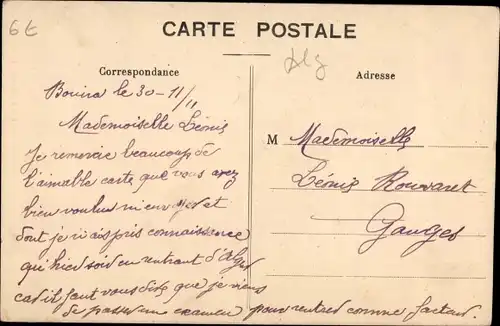 6€
CARTE POSTALE
Alg
Correspondance
Adresse
Bouira le 30-11/11
Mademoiselle Léonis
Je remercie beaucoup de
l'aimable carte que vous avez
bien voulu m'envoyer et
dont je n'ai pris connaissance
qu'hier soir en rentrant d'Alger
car il faut vous dire que je viens
de passer un examen pour rentrer comme facteur
M Mademoiselle
Léonis Rouvaret
Ganges